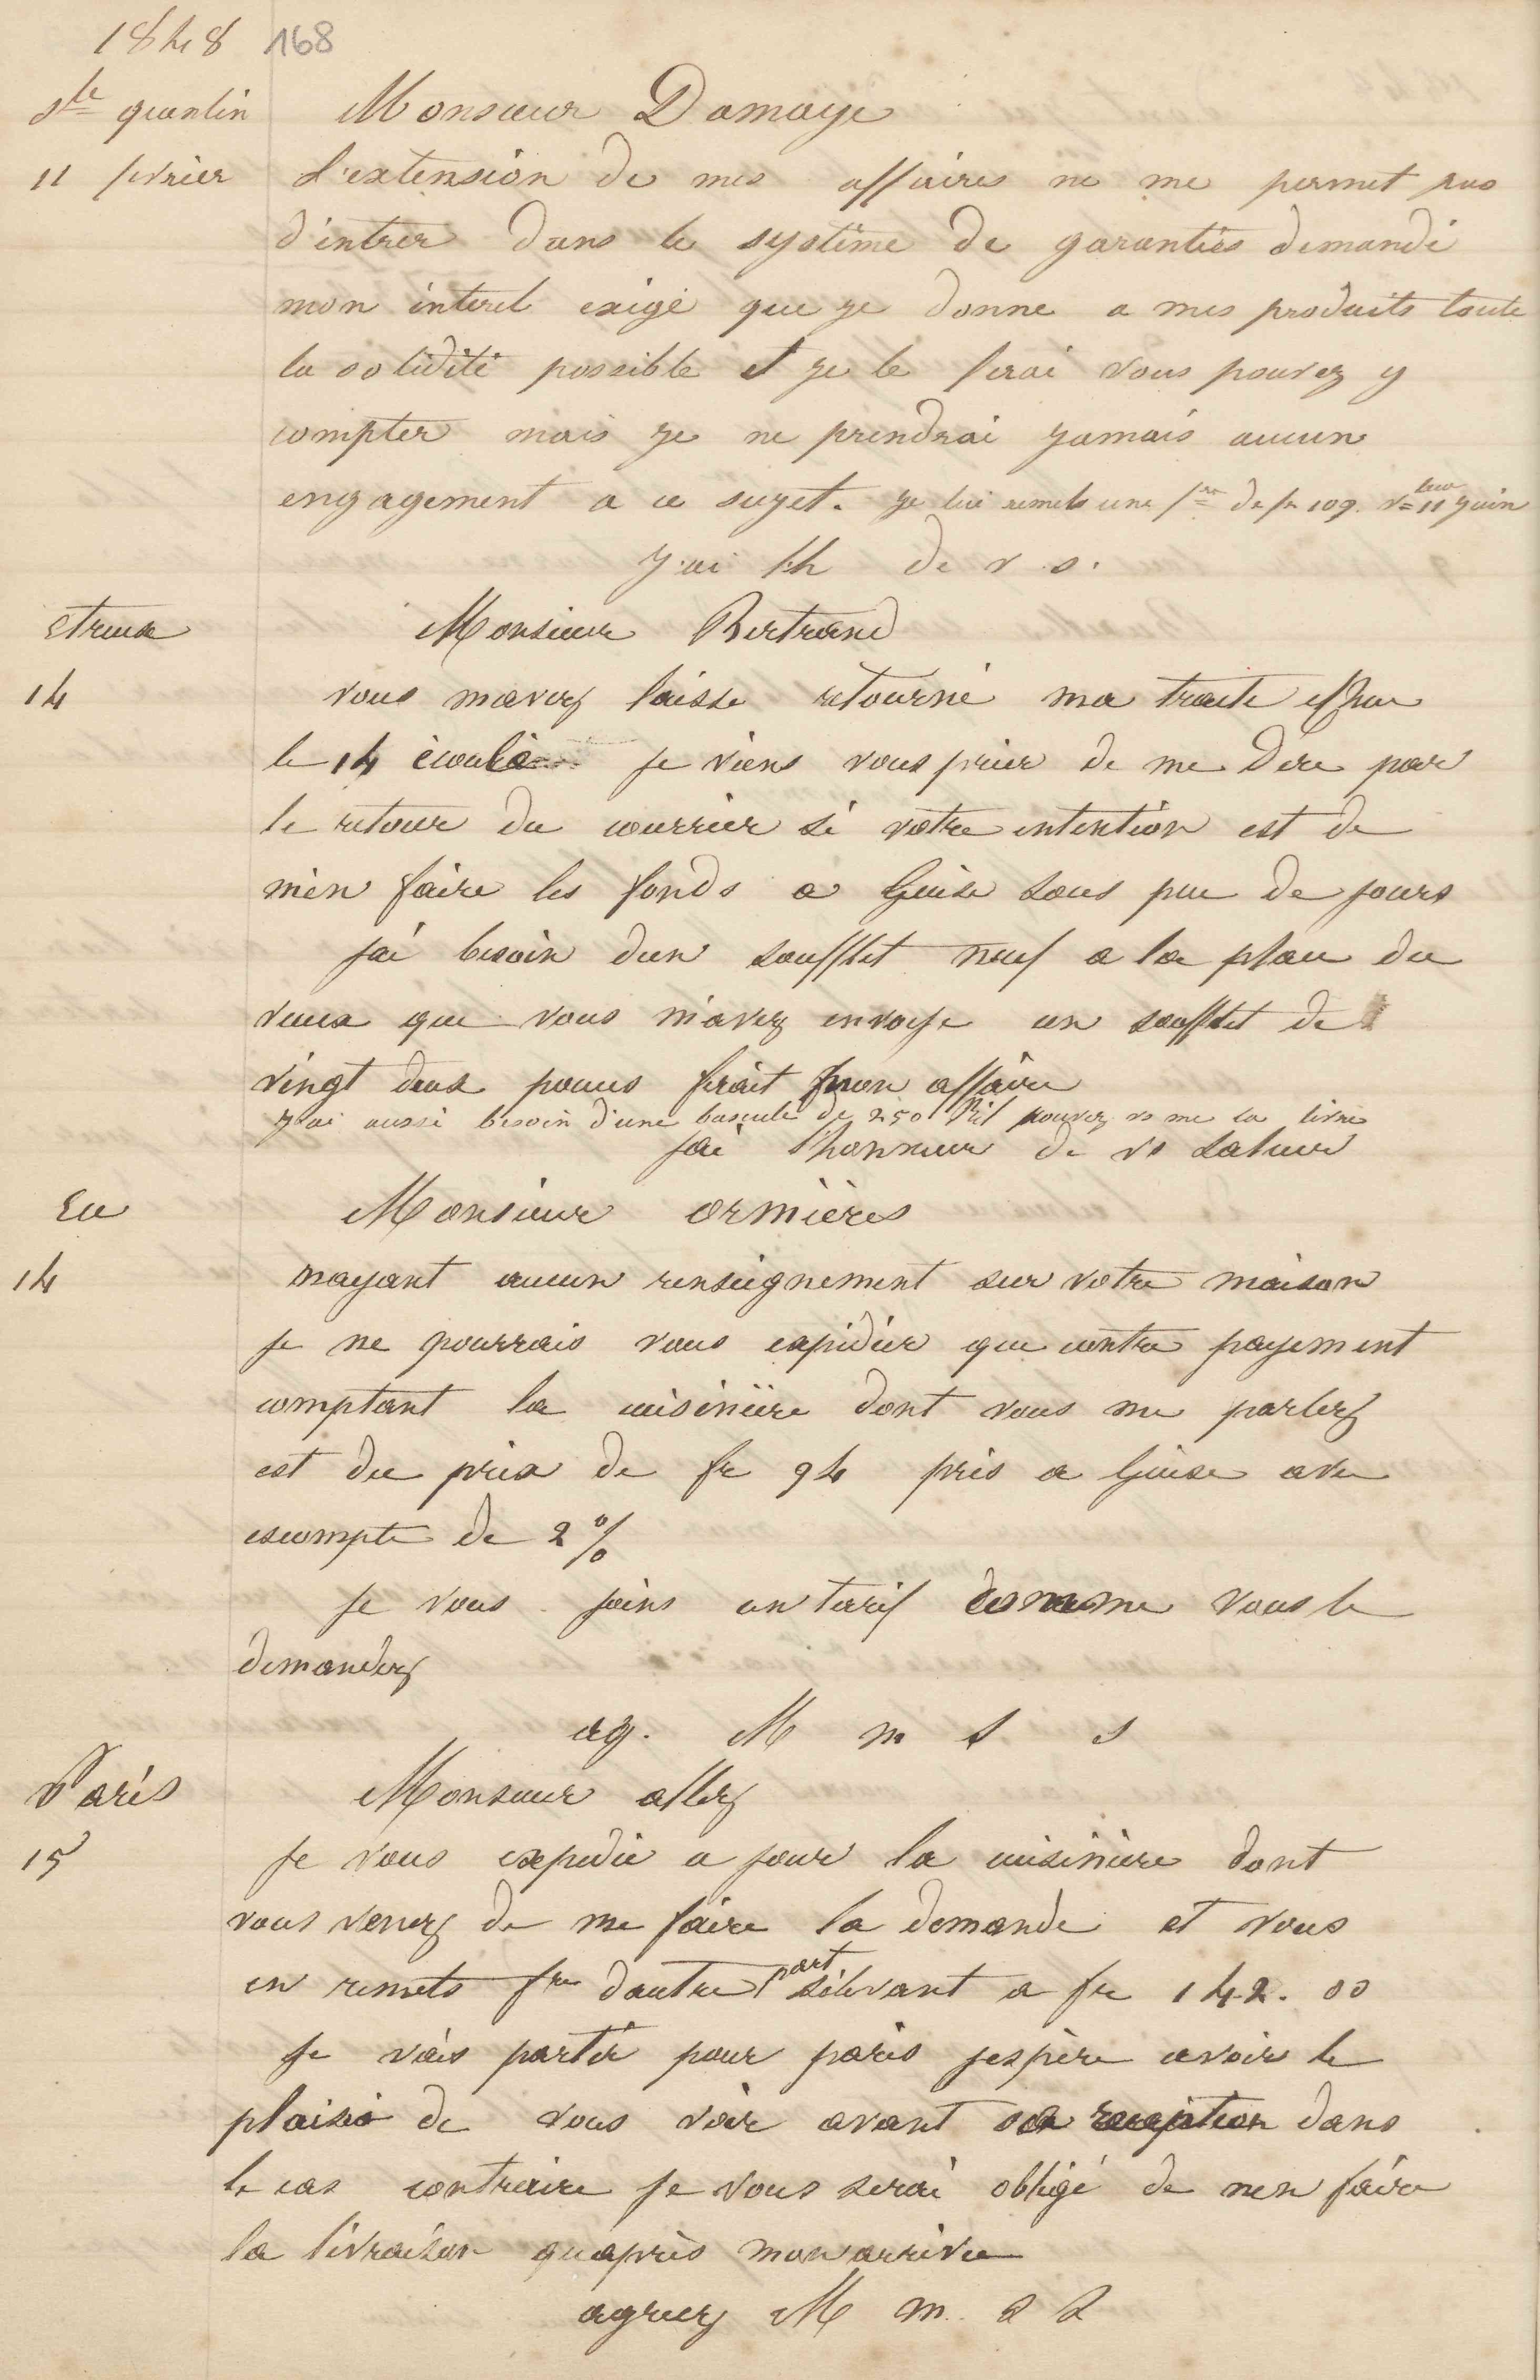 1848 168
Ste quentin
11 fevrier
Monsieur Damaye
L'extension de mes affaires ne me permet pas
d'entrer dans le système de garanties demandé
mon interet exige que je donne a mes produits toute
la solidité possible et je le ferai vous pouvez y
compter mais je ne prendrai jamais aucun
engagement a ce sujet. je lui remets une fre de fr 109. vr 11 juin
J'ai l'h de v s.
Etreux
14
Monsieur Bertrand
vous mavez laisse retourné ma traite
le 14 écoulé je viens vous prier de me dire par
le retour du courrier si votre intention est de
m'en faire les fonds a Guise sous peu de jours
jai besoin dun soufflet neuf a la place du
vieux que vous m'avez envoye un soufflet de
vingt deux pouces ferait mon affaire
J'ai aussi besoin d'une bascule de 250 Kil pouvez vs me la livrer
jai l'honneur de vs saluer
Eu
14
Monsieur ormières
nayant aucun renseignement sur votre maison
je ne pourrais vous expédier que contre payement
comptant la cuisinière dont vous me parlez
est du prix de fr 94 pris a Guise avec
escompte de 2 %
je vous joins un tarif comme vous le
demandez
ag. M m s s
Paris
15
Monsieur allez
je vous expedie a jour la cuisinière dont
vous venez de me faire la demande et vous
en remets fre dautre part sélevant a fr 142.00
je vais partir pour paris jespère avoir le
plaisir de vous voir avant sa reception dans
le cas contraire je vous serai obligé de nen faire
la livraison quaprès mon arrivée
agreez M m. s s